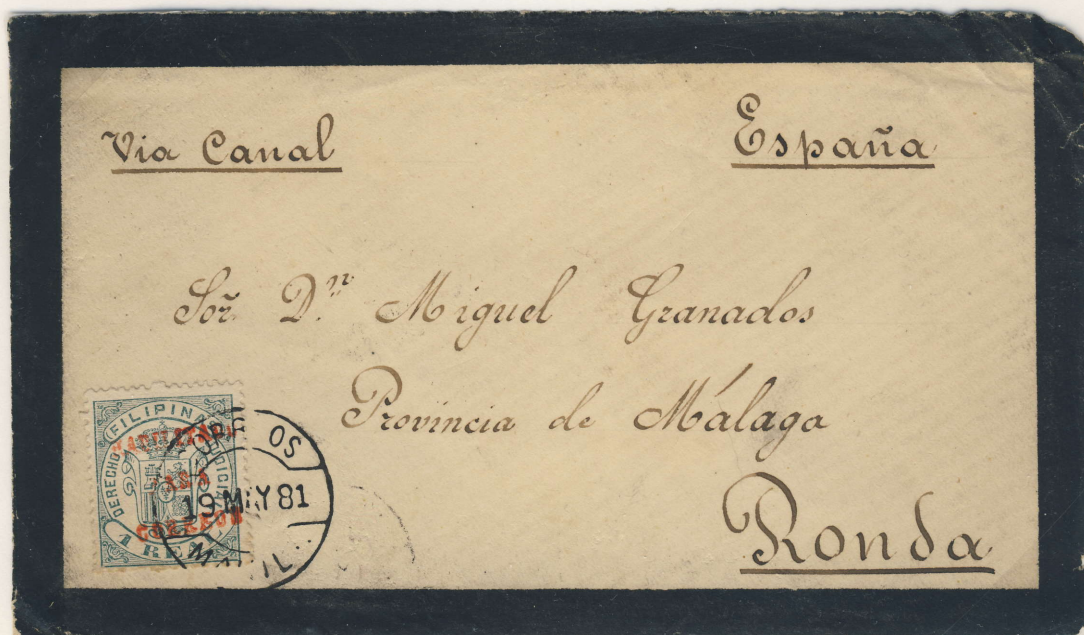 Via Canal
España
Sor. Dn. Miguel Granados
Provincia de Málaga
Ronda
FILIPINAS
DERECHO JUDICIAL
HABILITADO
PARA
CORREOS
1 REAL
CORREOS
19 MAY 81
MANILA